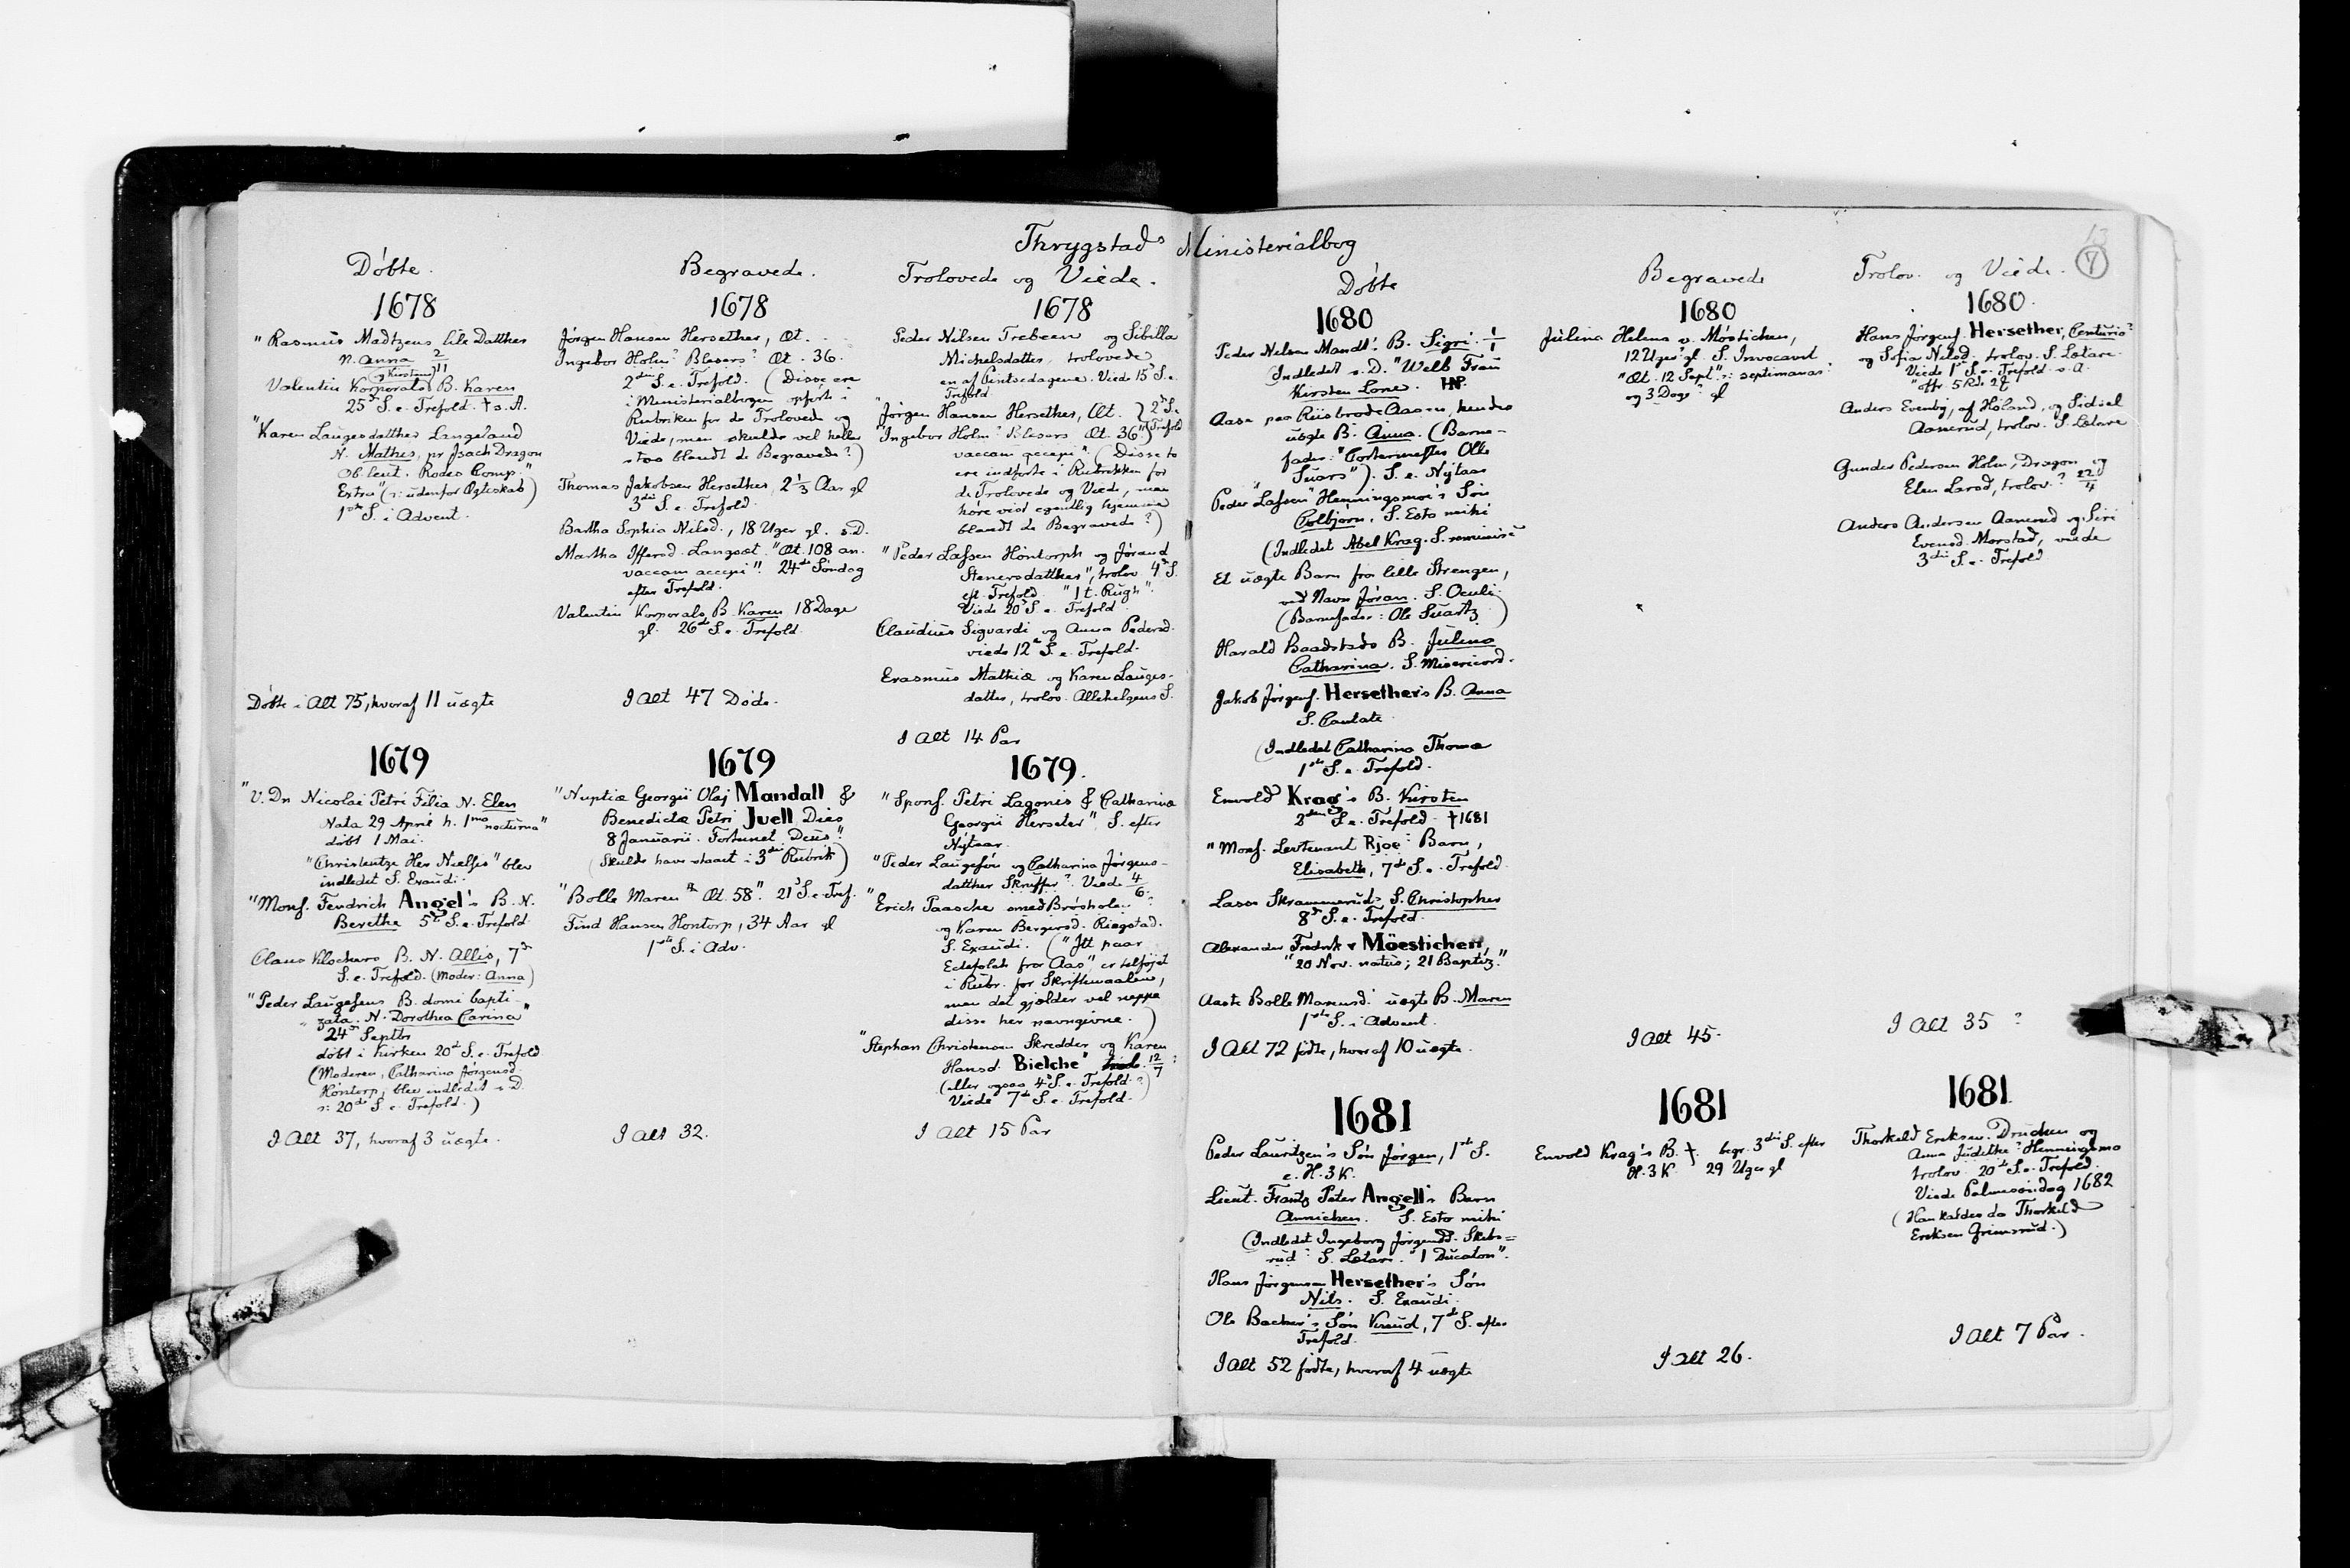 Thrygstads Ministerialbog
Döbte.
1678
"Rasmus Madtzens lile Datther
n. Anna 2/11
(og Kirstens)
Valentin Korporals B. Karen
25de S. e. Trefold. † s. A.
"Karen Laugesdatther Langeland
N. Mathes, pr Jsach Dragon
Ob. leut. Rodes Comp."
Extra" (ɔ: udenfor Ægteskab)
1ste S. i Advent.
Döbte i Alt 75, hvoraf 11 uægte
1679
"V. Dn Nicolai Petri Filia N. Elen
Nata 29 April h. 1ma nocturna"
döbt 1 Mai.
"Christentze Her Nielses" blev
indledet S. Exaudi.
"Mons. Fendrich Angel's B. N.
Berethe 5te S. e. Trefold.
Claus Klockers B. N. Allis, 7de
S. e. Trefold. (Moder: Anna)
"Peder Laugesens B. domi bapti-
zata. N. Dorothea Carina"
24de Septbr
döbt i Kirken 20de S. e. Trefold
(Moderen, Catharina Jörgensd.
Höntorp, blev indledet s. D.
ɔ: 20de S. e. Trefold.)
I Alt 37, hvoraf 3 uægte.
Begravede.
1678
Jörgen Hansen Hersether, Æt.
Ingebor Holm? Blesers? Æt. 36.
2den S. e. Trefold. (Disse ere
i Ministerialbogen opfört i
Rubriken for de Trolovede og
Viede, men skulde vel heller
staa blandt de Begravede?)
Thomas Jakobsen Hersether, 2 1/3 Aar gl
3die S. e. Trefold.
Bartha Sophia Nilsd., 18 Uger gl. s. D.
Martha Iffersd. Langsæt. "Æt. 108 an.
vaccam accepi". 24de Söndag
efter Trefold.
Valentin Korporals B. Karen 18 Dage
gl. 26de S. e. Trefold.
I Alt 47 Döde.
1679
"Nuptiæ Georgii Olaj Mandall &
Benedictæ Petri Juell Dies
8 Januarii. Fortunet Deus".
(Skulde have staaet i 3die Rubrik)
"Bolle Maren Æt. 58". 21de S. e. Tref.
Find Hansen Hontorp, 34 Aar gl
1ste S. i Adv.
I Alt 32.
Trolovede og Viede.
1678
Peder Nilsen Trebeen og Sibilla
Michelsdatter, trolovede
en af Pintsedagene. Viede 15de S. e.
Trefold
"Jörgen Hansen Hersether, Æt. } 2den S. e.
"Ingebor Holm? Blesers Æt. 36." } Trefold
vaccam accepi". (Disse to
ere indförte i Rubrikken for
de Trolovede og Viede, men
höre vist egentlig hjemme
blandt de Begravede?)
"Peder Lassen Höntorph og Jörand
Stenersdatther", trolov. 4de S.
eft. Trefold. "1 t. Rugh".
Viede 20de S. e. Trefold
Claudius Sigvardi og Anna Pedersd.
viede 12te S. e. Trefold.
Erasmus Mathiæ og Karen Lauges-
datter, trolov. Allehelgens S.
I Alt 14 Par
1679.
"Spons. Petri Lagonis & Catharina
Georgii Herseter", S. efter
Nytaar.
"Peder Laugesön og Catharina Jörgens-
datther Skruffer? Viede 4/6.
"Erich Paasche smed Bröshol
og Karen Bergersd. Ringstad.
S. Exaudi. ("Itt paar
Ectefolch fra Aas", er tilföjet
i Rubr. for Skriftemaalene,
men det gjælder vel neppe
disse her navngivne.)
"Stephan Christensen Skredder og Karen
Hansd. Bielche" 12/7 ?
(eller ogsaa 4de S. e. Trefold?)
Viede 7de S. e. Trefold.
I Alt 15 Par
Döbte
1680
Peder Nelsen Mandt. B. Sigri. 1/1
(Indledet s. D. "Welb Frau
Kirsten Lone.
Aase paa Riisbrode Aasen, hendes
uægte B. Anna. (Barne-
fader: "Corterme Olle
Suars"). S. e. Nytaar
Peder "Lassen" Henningsmoe's Sön
Colbjörn. S. Esto mihi
(Indledet Abel Krag. S. reminisc
Et uægte Barn fra lille Strengen,
ved Navn Jöran. S. Oculi.
(Barnefader: Ole Suartz)
Harald Baadstads B. Julina
Catharina. S. Misericord.
Jakob Jörgens. Hersether's B. Anna
S. Cantate.
(Indledet Catharina Thomæ
1ste S. e. Trefold.
Envold Krag's B. Kirsten
2den S. e. Trefold † 1681
"Mons. Leutenant Rjoe: Barn,
Elisabeth, 7de S. e. Trefold.
Lasse Skrammerud. S. Christopher
8de S. e. Trefold.
Alexander Fredrik v Möestichen,
"20 Nov. natus; 21 Baptiz."
Aaste Bolle Marensd. uægte B. Maren
1ste S. i Advent.
I Alt 72 födte, hvoraf 10 uægte.
1681
Peder Lauritzen's Sön Jörgen, 1ste S.
e. H. 3 K.
Lieut. Frantz Peter Angell's Barn
Annichen. S. Esto mihi
(Indledet Ingeborg Jörgensd. Skibs=
rud: S. Lætare. "1 Ducaton".
Hans Jörgensen Hersether's Sön
Nils. S. Exaudi.
Ole Backer's Sön Knud, 7de S. efter
Trefold.
I Alt 52 födte, hvoraf 4 uægte
Begravede
1680
Julina Helena v. Möstichen,
12 Uger gl. S. Invocavit
"Æt. 12 Sept." ɔ: septimanas
og 3 Dage gl
I Alt 45.
1681
Envold Krag's B. †. begr. 3die S. efter
H. 3 K. 29 Uger gl
I alt 26.
Trolov. og Viede.
13
7
1680.
Hans Jörgens. Hersether, Centurio?
og Sofia Nilsd. trolov. S. Lætare.
Viede 1ste S. e. Trefold s. A.
"offr. 5 Rd.
Anders Evenby, af Höland, og Sidsel
Aamerud, trolov. S. Lætare
Gunder Pedersen Holm, Dragon og
Elen Larsd, trolov.? 22/4
Anders Andersen Aamerud og Siri
Evensd. Morstad, viede
3die S. e. Trefold
I Alt 35 ?
1681.
Thorkeld Eriksen Druchen og
Anna Judithe? Henningsmo
trolov. 20de S. e. Trefold.
Viede Palmesöndag 1682
(Han kaldes da Thorkeld
Eriksen Grimsrud.)
I Alt 7 Par.